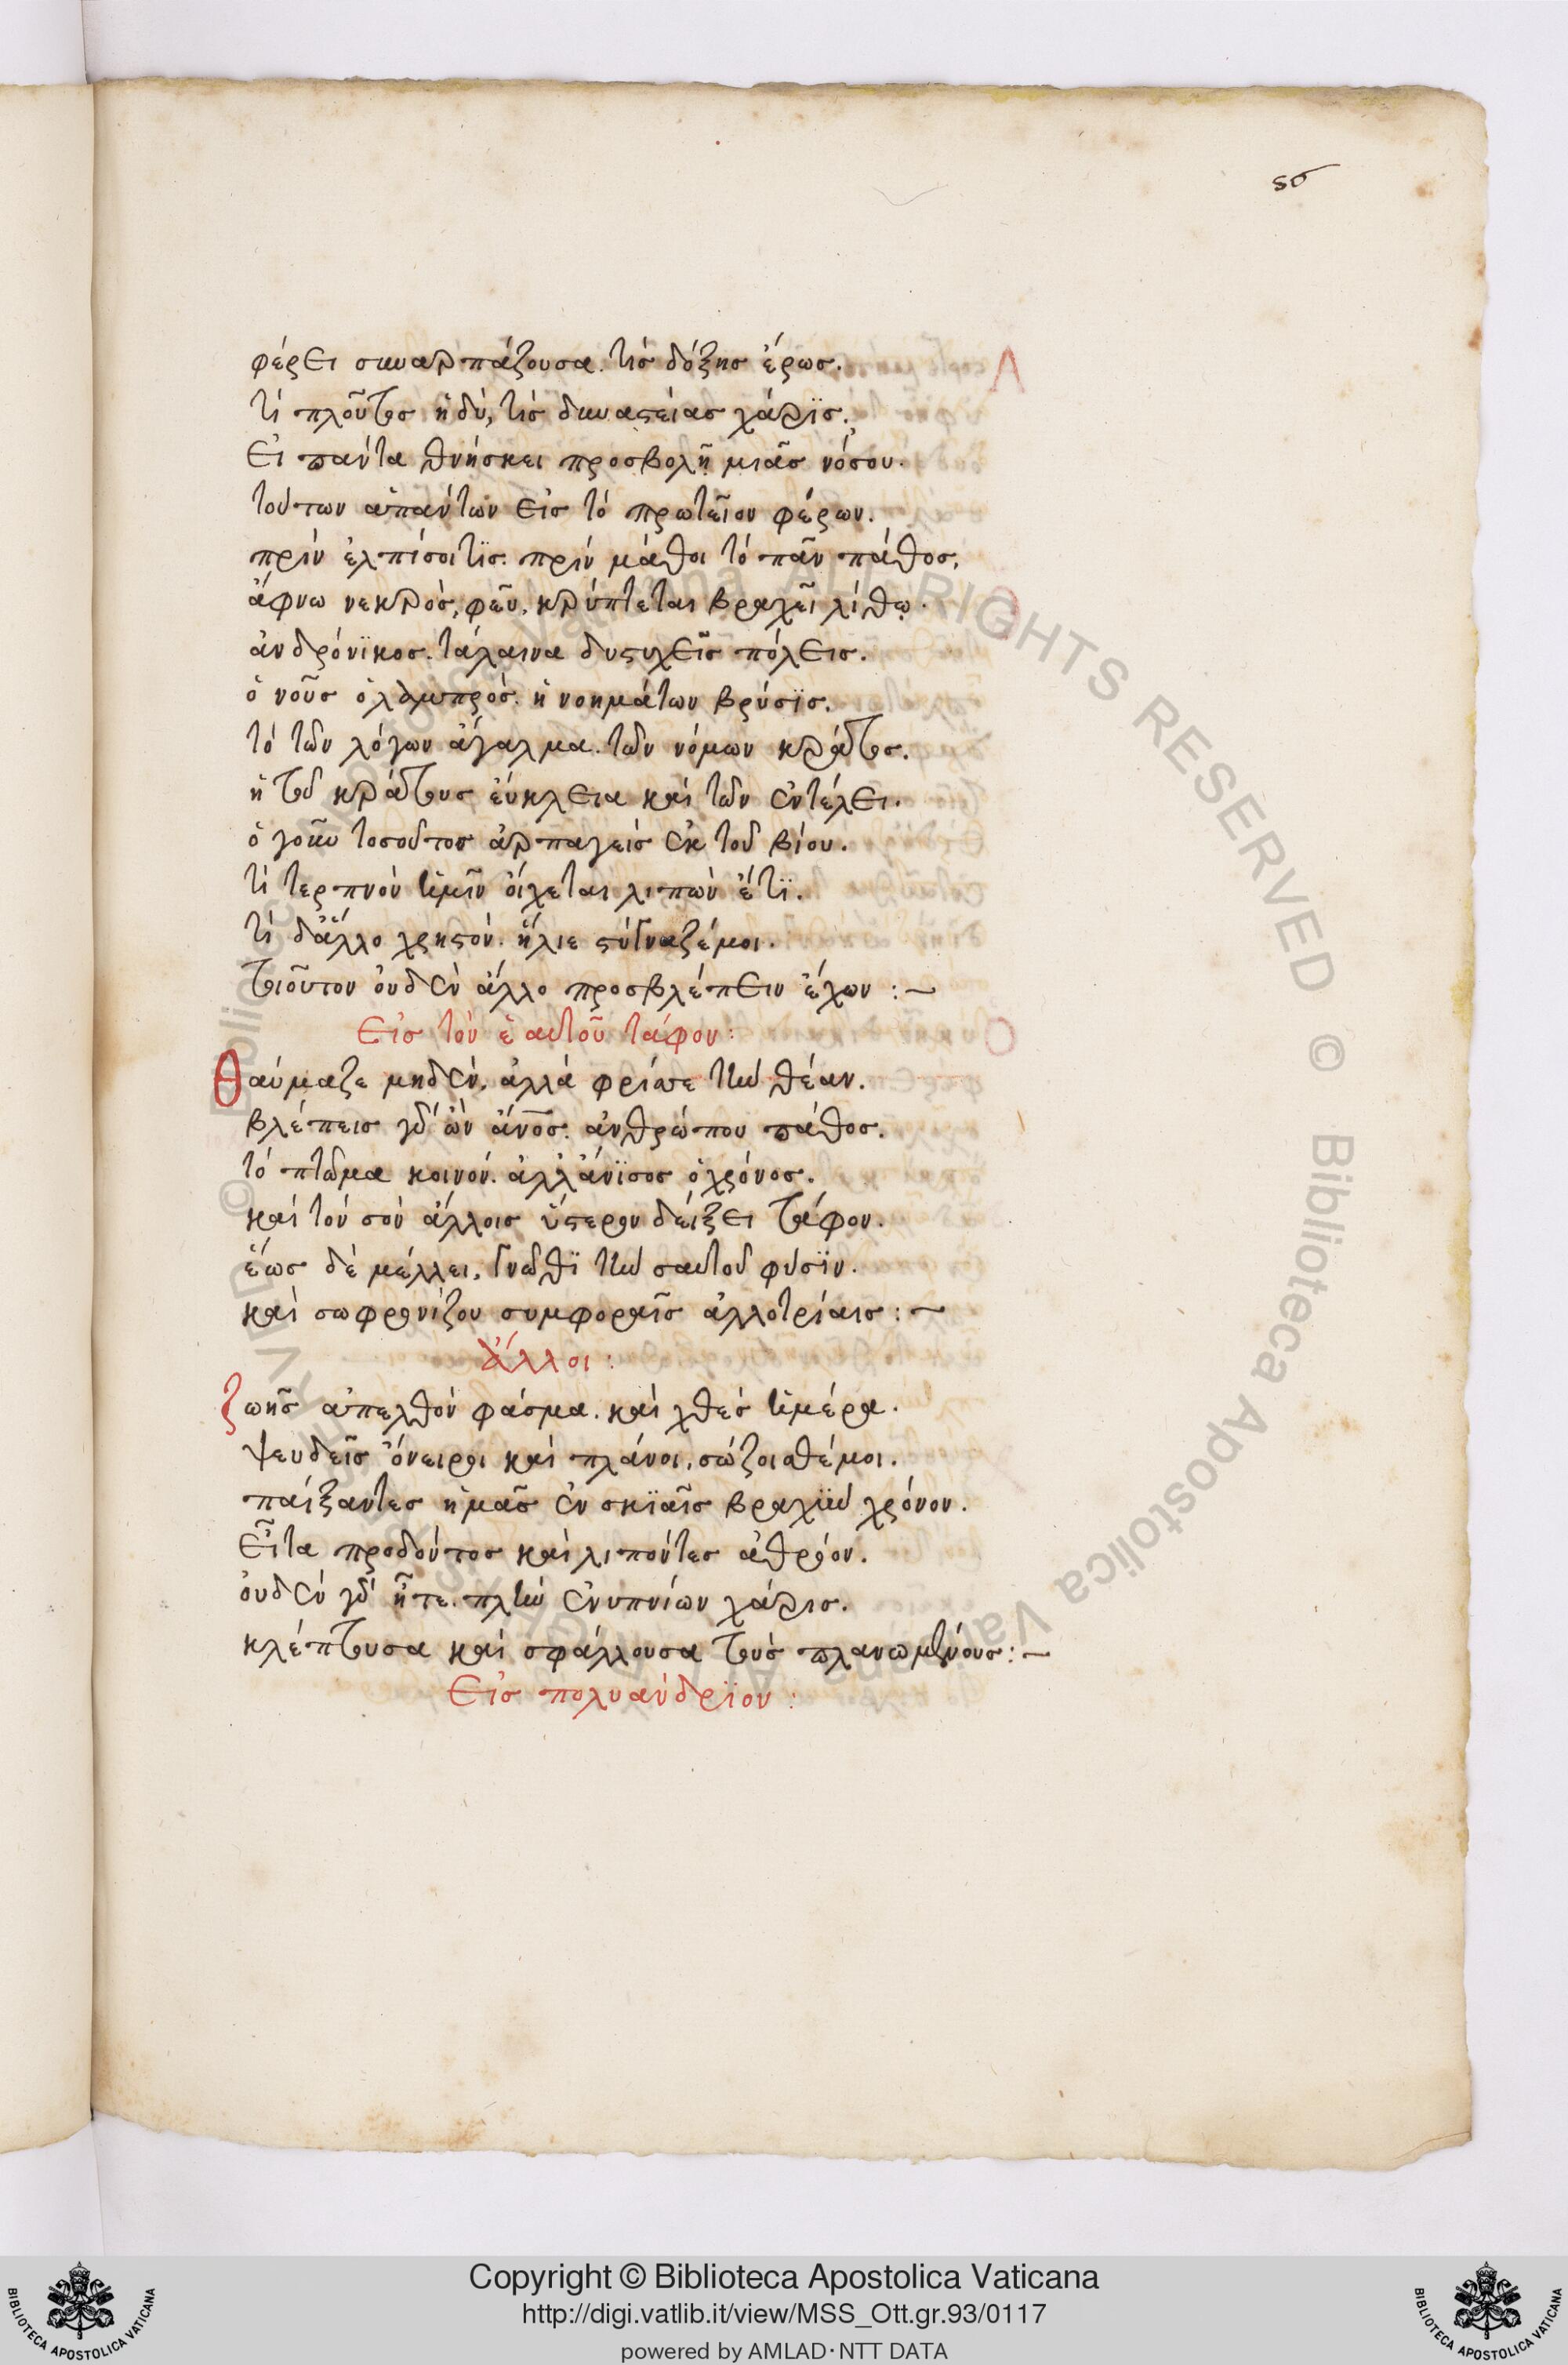 56
φέρει συναρπάζουσα. τίς δόξης ἔρως.
τί πλοῦτος ἡδύ, τίς δυναστείας χάρϊς.
Εἰ πάντα θνήσκει προσβολῇ μιᾶς νόσου.
τούτων ἁπάντων εἰς τὸ πρωτεῖον φέρων.
πρὶν ἐλπίσοι τϊς. πρὶν μάθοι τὸ πᾶν πάθος,
ἄφνω νεκρὸς, φεῦ, κρύπτεται βραχεῖ λίθῳ.
ἀνδρόνϊκος. τάλαινα δυστυχεῖς πόλεις.
ὁ νοῦς ὁ λαμπρὸς. ἡ νοημάτων βρύσϊς.
τὸ τῶν λόγων ἄγαλμα. τῶν νόμων κράτος.
ἡ τοῦ κράτους εὔκλεια καὶ τῶν ἐν τέλει.
ὁ γοῦν τοσοῦτος ἁρπαγεὶς ἐκ τοῦ βίου.
τί τερπνὸν ἡμῖν οἴχεται λιπὼν ἔτϊ.
τί δἄλλο χρηστὸν. ἥλιε στύγναζέ μοι.
τοιοῦτον οὐδὲν ἄλλο προσβλέπειν ἔχων :~
Εἰς τὸν ἑαυτοῦ τάφον:
Θαύμαζε μηδὲν, ἀλλὰ φρίττε τὴν θέαν.
βλέπεις γὰρ ὢν ἄνος. ἀνθρώπου πάθος.
τὸ πτῶμα κοινὸν. ἀλλ' ἄνϊσος ὁ χρόνος.
καὶ τὸν σὸν ἄλλοις ὕστερον δείξει τάφον.
ἕως δὲ μέλλει, γνῶθϊ τὴν σαυτοῦ φύσϊν.
καὶ σωφρονίζου συμφοραῖς ἀλλοτρίαις :~
ἄλλοι :
ζωῆς ἀπελθὸν φάσμα. καὶ χθὲς ἡμέρα.
ψευδεῖς ὄνειροι καὶ πλάνοι, σώζοισθέ μοι.
παίξαντες ἡμᾶς ἐν σκϊαῖς βραχὺν χρόνον.
Εἶτα προδόντος καὶ λιπόντες ἀθρόον.
οὐδὲν γὰρ ἦτε. πλὴν ἐνυπνίων χάρις.
κλέπτουσα καὶ σφάλλουσα τοὺς πλανωμένους :~
Εἰς πολυάνδρϊον :
Copyright © Biblioteca Apostolica Vaticana
http://digi.vatlib.it/view/MSS_Ott.gr.93/0117
powered by AMLAD·NTT DATA